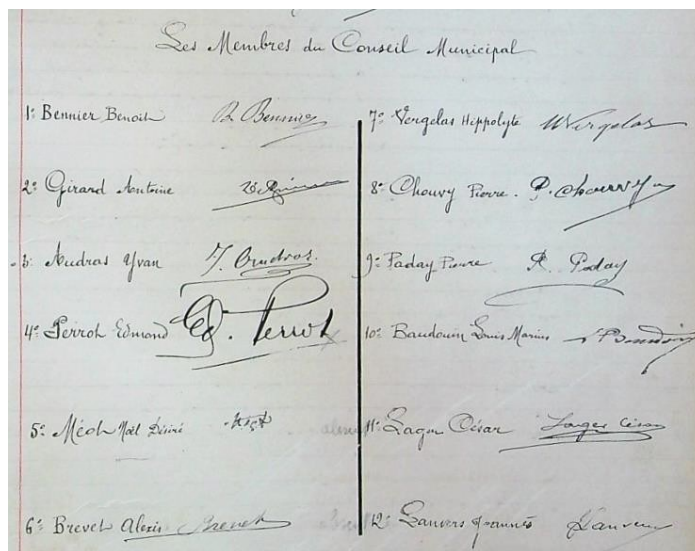 Les Membres du Conseil Municipal
1º Bennier Benoit B. Bennier
2º Girard Antoine
3º Audras Yvan Y. Audras
4º Perrot Edmond Ed. Perrot
5º Méoh Noël Désiré
6º Brevet Alexis Brevet
7º Vergelas Hippolyte H Vergelas
8º Chouvy Pierre. P. Chouvy
9º Paday Pierre P. Paday
10º Baudouin Louis Marius Baudouin
11º César César
12º Lanvers Joannès Lanvers